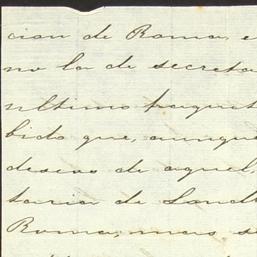 cion de Roma, e
no la de secreta
ultimo paquet
bido que, aunque
deseos de aquel,
taria de Lond
Roma, mas s